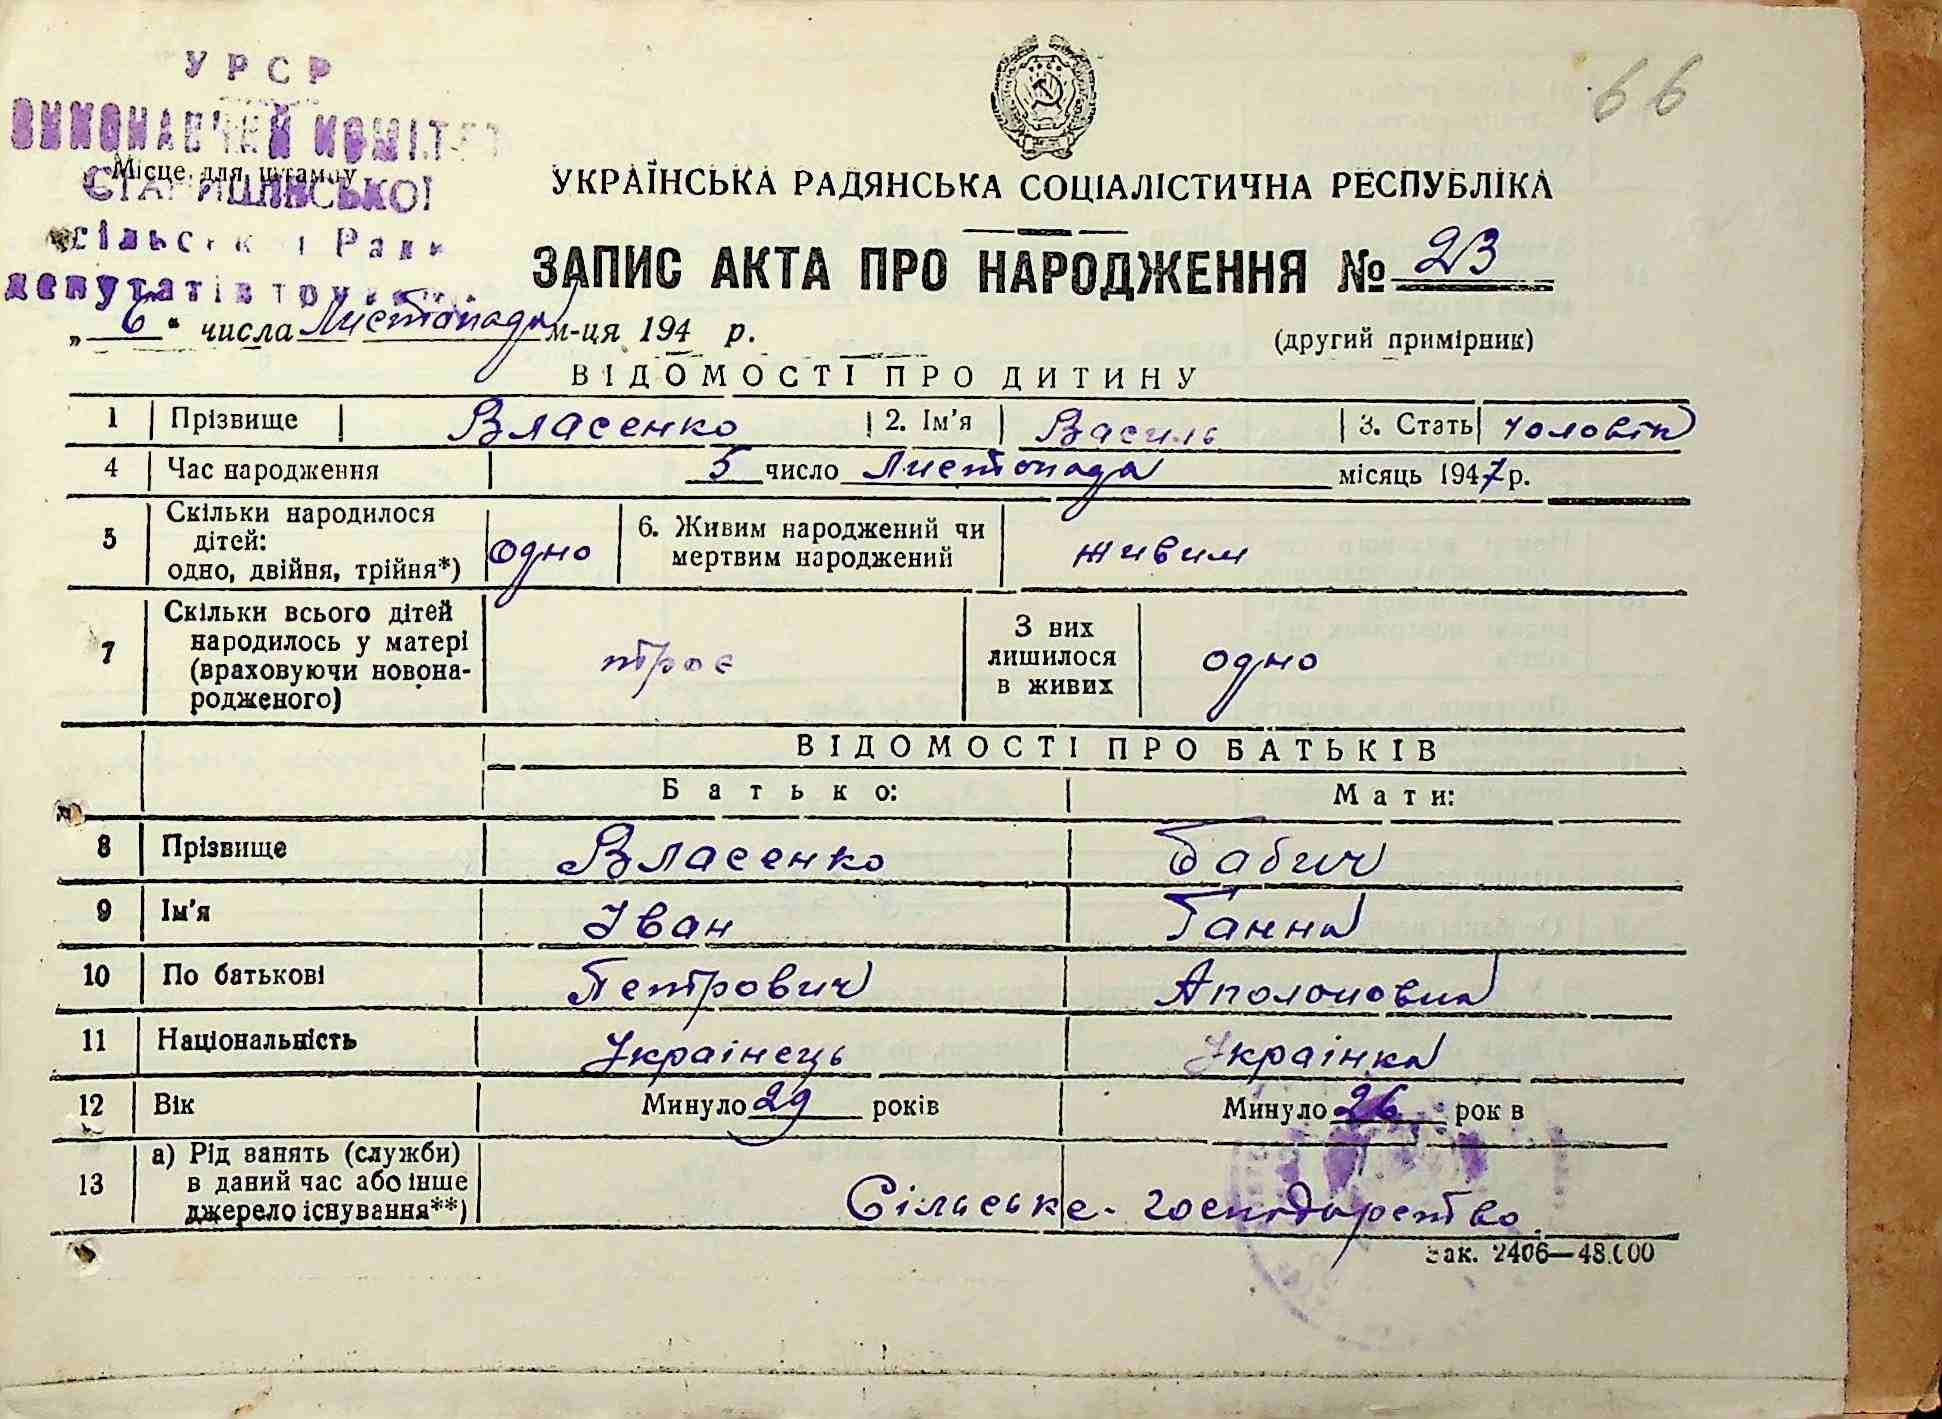 66
УРСР
ВИКОНАВЧИЙ КОМІТЕТ
Місце для штампу
сільської Ради
депутатів
УКРАЇНСЬКА РАДЯНСЬКА СОЦІАЛІСТИЧНА РЕСПУБЛІКА
ЗАПИС АКТА ПРО НАРОДЖЕННЯ № 23
„ 6 “ числа Листопада м-ця 194 р.
(другий примірник)
ВІДОМОСТІ ПРО ДИТИНУ
1 Прізвище Власенко 2. Ім'я Василь 3. Стать чоловіч
4 Час народження 5 число Листопада місяць 1947 р.
5 Скільки народилося дітей: одно, двійня, трійня*) одно 6. Живим народжений чи мертвим народжений живим
7 Скільки всього дітей народилось у матері (враховуючи новонародженого) троє З них лишилося в живих одно
ВІДОМОСТІ ПРО БАТЬКІВ
Батько: Мати:
8 Прізвище Власенко Бабич
9 Ім'я Іван Ганна
10 По батькові Петрович Аполоновна
11 Національність Українець Українка
12 Вік Минуло 29 років Минуло 26 рок в
13 а) Рід занять (служби) в даний час або інше джерело існування**) Сільське-господарство.
Зак. 2406—48.000